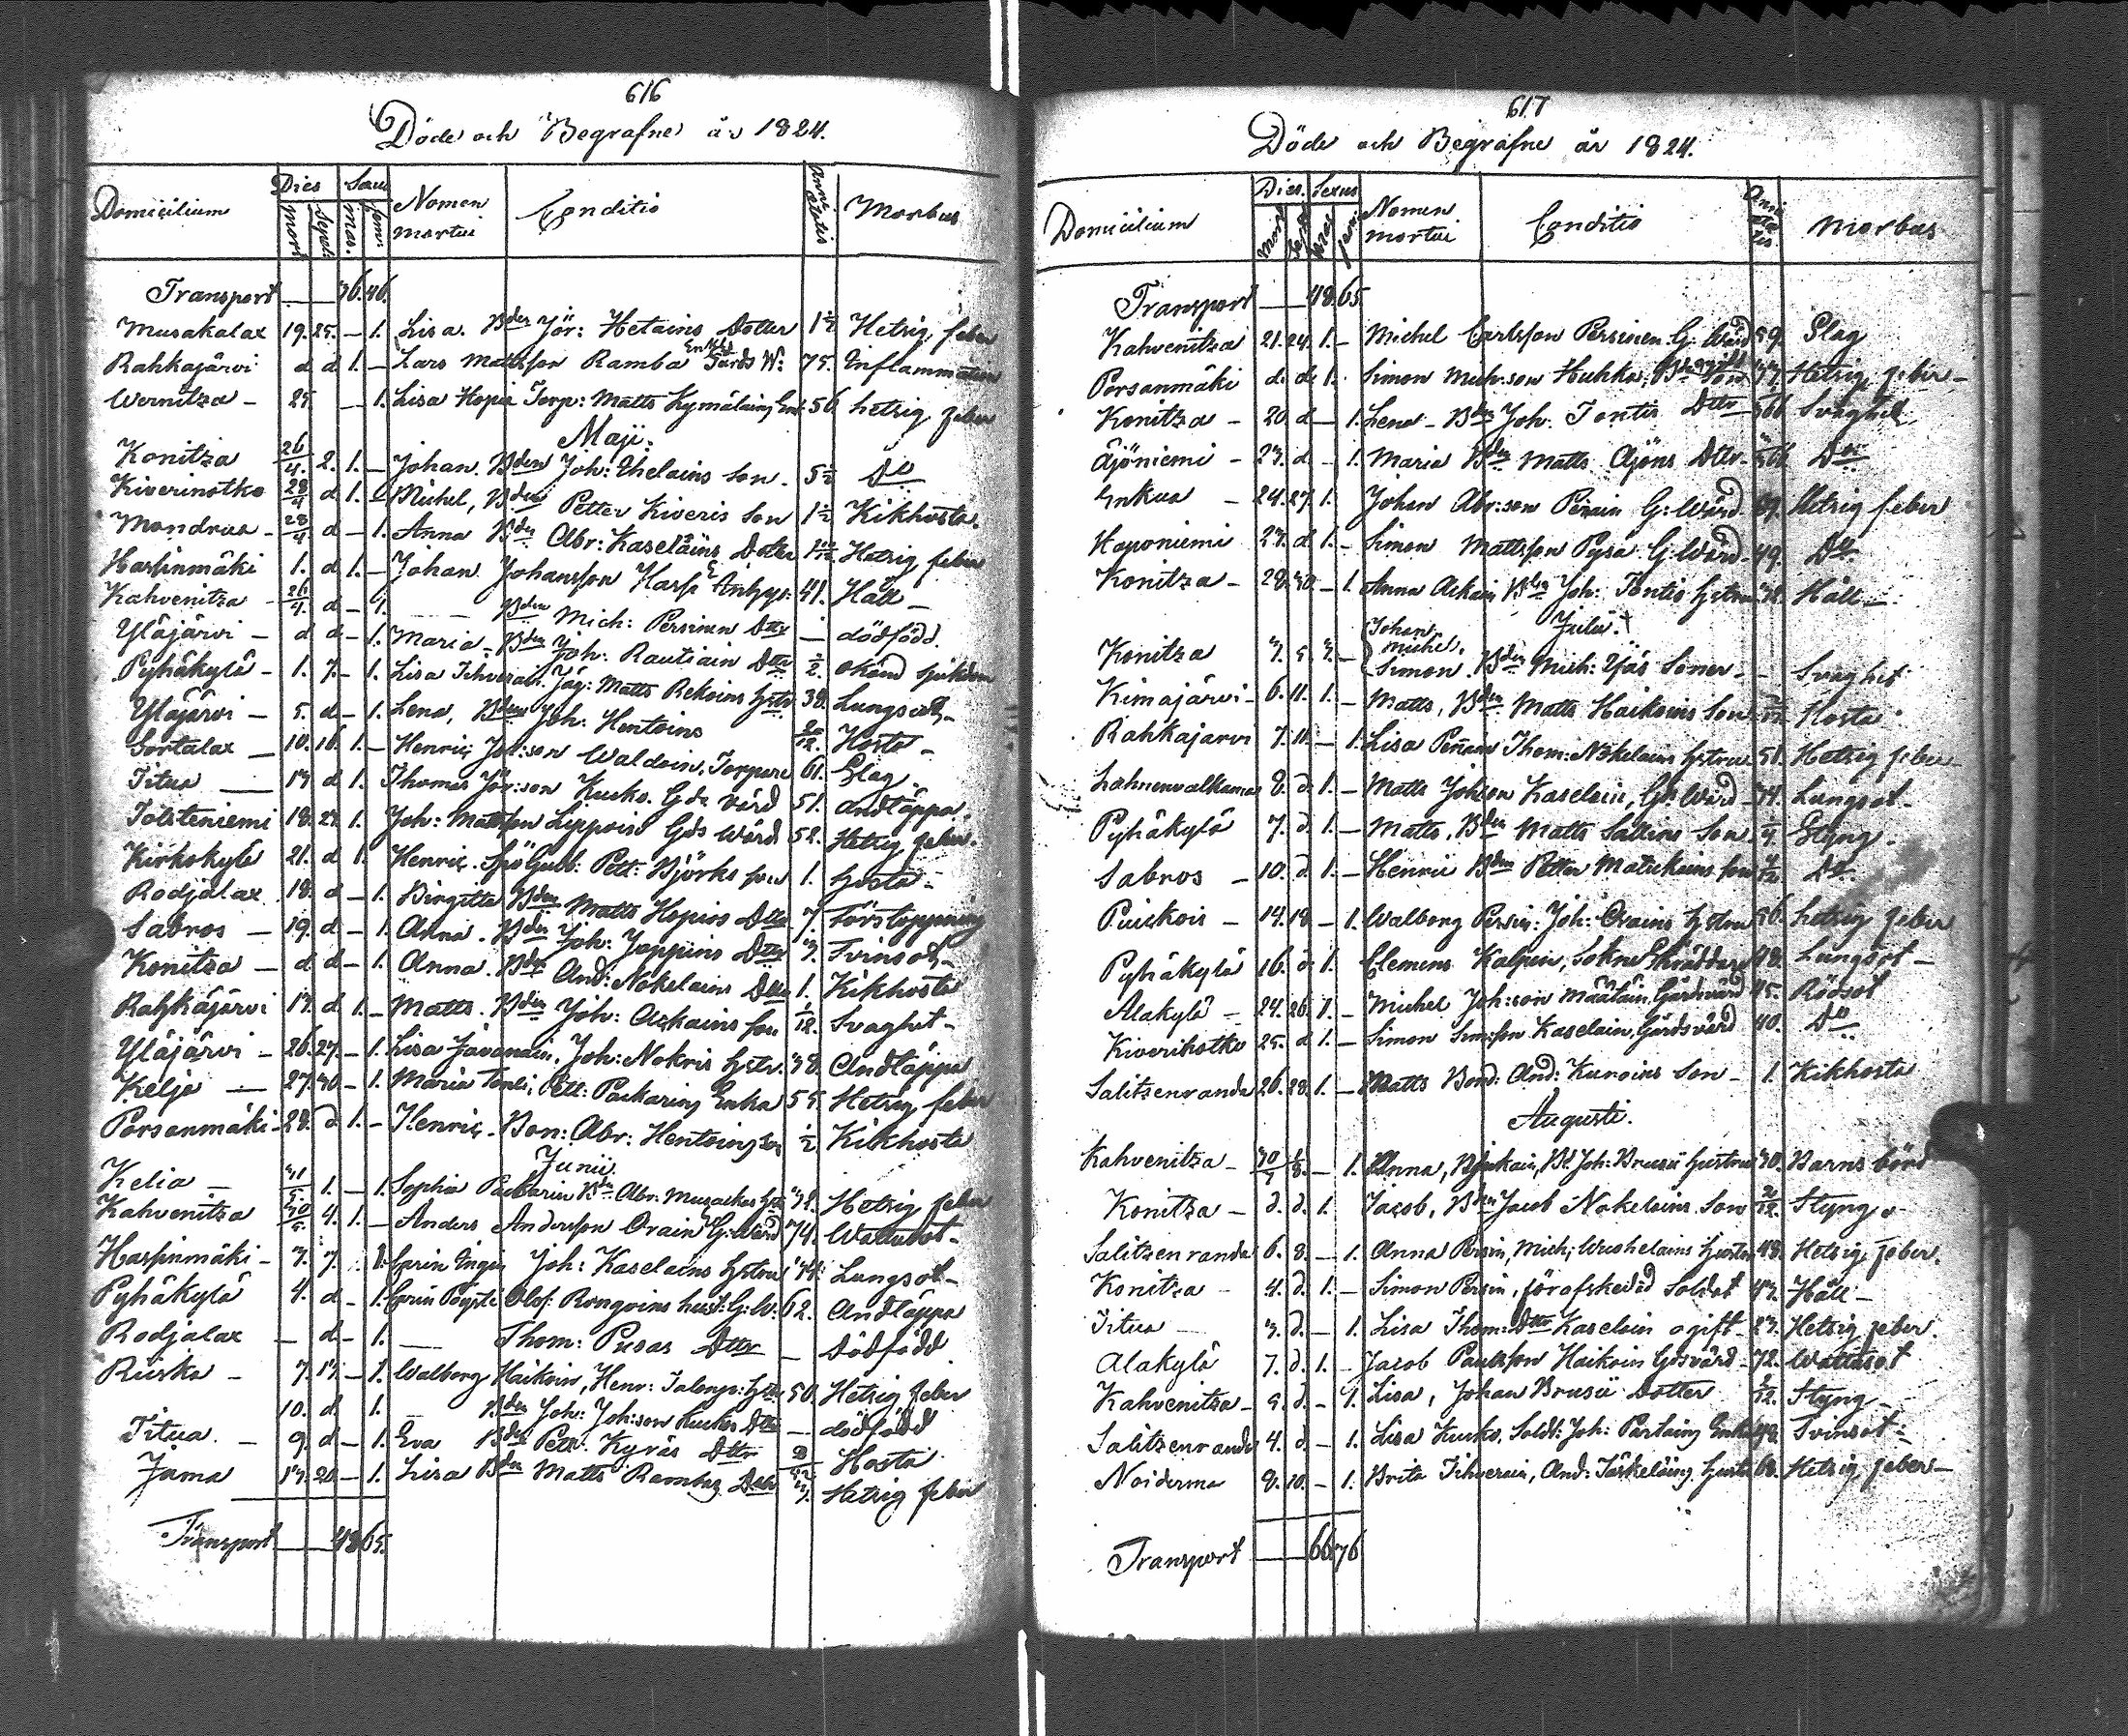 616
Döde och Begrafne år 1824.
Domicilium Dies Mort. Sepult. Sexus Mas. Fem. Nomen mortui Conditio Anni Ætatis Morbus
Transport 36. 46.
Musakalax 19. 25. — 1. Lisa. Bden Jör: Hetains Dotter 1½ Hetsig feber
Rahkajärvi d d 1. — Lars Mattsson Ramba Enkl. Gårds W: 75. Inflammation
Wernitza — 25. — 1. Lisa Hopia Torp: Matts Kymäläing Enk. 56 hetsig feber
Maji.
Konitza 26/4. 2. 1. — Johan. Bden Joh: Thelains Son. 5½ Do
Kiverinotko 28/4 d 1. — Michel, Bden Petter Kiveris Son 1½ Kikhosta
Mondrus — 28/4. d — 1. Anna Bden Abr: Kaseläins Dotter Hetsig feber
Harsinmäki 1. d 1. — Johan Johansson Harsi 41. Håll —
Kahvenitza — 26/4. d — 1. — Bden Mich: Persinen Dttr — dödfödd.
Yläjärvi — d d — 1. Maria — Bden Joh: Rautiain Dttr ½. okänd sjukdom
Pyhäkylä — 1. 7. — 1. Lisa Jäg: Matts Rekoins hstr 38. Lungsot —
Yläjärvi — 5. d — 1. Lena, Bden Joh: Hentoins Hosta —
Sortalax — 10. 16. 1. — Henric Joh:son Waldoin, Torpare 61. Slag.
Titua — 13 d 1. Thomas Jör:son Kurko. Gds Vård 51. Andtäppa.
Tolsteniemi 18. 23. 1. Joh: Mattsson Lippoin Gds Wård 52. Hetsig feber.
Kirkokylä 21. d 1. Henric. Pett: Björks son 1. hosta
Rodjalax 18. d — 1. Birgitta Bden Matts Hopios Dttr 7. Förstoppning
Sabros — 19. d — 1. Anna. Bden Joh: Joppins Dttr 3. Tvinsot —
Konitza — d d — 1. Anna. Bden And: Nokelains Dttr 1. Kikhosta
Rahkajärvi 13. d 1. — Matts. Bden Joh: Ackains son 1/12. Svaghet —
Yläjärvi — 26. 27. — 1. Lisa Javanain, Joh: Nokris hstr. 38. Andtäppa
Kelja — 27. 30 — 1. Maria Tonti, Pett: Packaring Enka 55. Hetsig feber
Porsanmäki — 28. d 1. — Henric — Bon: Abr: Hentoing Son ½ Kikhosta
Junii.
Kelia — 31/5. 1. — 1. Sophia Packarin Bds Abr: Musackas hstr 32. Hetsig feber
Kahvenitza 30/5. 4. 1. — Anders Andersson Orain G: Wärd 74. Wattusot —
Harsinmäki — 3. 7. 1. Carin Joh: Kaselains hstru 34. Lungsot —
Pyhäkylä 4. d — 1. Carin Olof: Rongoins hust: G: W: 62. Andtäppa
Rodjalax — d — 1. — Thom: Pusas Dttr — Dödfödd
Riiska — 7. 13. — 1. Walborg Haikoin, Henr: hstr 50. Hetsig feber
10. d. 1. — Bden Joh: Joh:son Kurkos Dttr — dödfödd
Titua. — 9. d — 1. Eva Bden Pett: Kyräs Dttr Hosta
Jama 13. 20. — 1. Lisa Bden Matts Rambas Dttr Hetsig feber
Transport 48 65.
617
Döde och Begrafne år 1824.
Domicilium Dies. Mort. Sepult. Sexus Mas. Fem. Nomen mortui Conditio Anni ætatis Morbus
Transport 48. 65
Kahvenitza 21. 24. 1. — Michel Carlsson Persinen G: Wärd 59. Slag
Porsanmäki d. d. 1. Simon Mich:son Huhka, 33. Hetsig feber —
Konitza — 20. d — 1. Lena — Bds Joh: Tontis Dttr Svaghet
Äjöniemi — 23. d — 1. Maria Bds Matts Äjöns Dttr. Do
Enkua — 24. 27. 1. Johan Abr:son Penain G: Wård. 39. Hetsig feber
Haponiemi 23. d 1. — Simon Mattsson Pysä G: Wård. 49. Do.
Konitza — 28. 30. — 1. Anna Ackain Bds Joh: Tontis hstru 32. Håll —
Julii.
Konitza 3. 5. 3. — Johan, Michel, Simon. Bden Mich: Yjäs Söner — — Svaghet
Kimajärvi — 6. 11. 1. — Matts, Bden Matts Haikoins Son Hosta
Rahkajärvi 7. 11. — 1. Lisa Penain Thom: Nokelains hstru 51. Hetsig feber
Lahnenvalkama 8. d. 1. — Matts Joh:son Kaselain, Gds Wärd — 34. Lungsot —
Pyhäkylä 7. d. 1. — Matts. Bden Matts Sallins Son. ¼ Styng —
Sabros — 10. d. 1. — Henric Bden Petter Matukains son Do.
Puiskois — 14. 18. — 1. Walborg Persin: Joh: Orains hstru 56. hetsig feber
Pyhäkylä 16. d. 1. Clemens Kalpin, Sokne Skräddare 48. Lungsot —
Alakylä — 24. 26. 1. — Michel Joh:son Määtäin, Gårdsvärd 45. Rödsot
Kiverikotko 25. d 1. — Simon Sim:son Kaselain, Gårdsvärd 40. Do.
Salitzenranda 26. 28. 1. — Matts Bond: And: Kuroins Son — 1. Kikhosta
Augusti.
Kahvenitza — 30/7 1/8. — 1. Anna, Bd. Joh: Brusii hustru 30. Barnsbörd
Konitza — d. d. 1. Jacob, Bden Jacob Nokelains Son Styng
Salitzenranda 6. 8. — 1. Anna Persin, Mich; Wushelains hustru 48. Hetsig feber.
Konitza — 4. d. 1. — Simon Persin, för afskedad Soldat 43. Håll —
Titua — 3. d. — 1. Lisa Thom: Dttr Kaselain ogift — 23. Hetsig feber.
Alakylä 7. d. 1. — Jacob Paulsson Haikoin Gdsvärd — 72. Wattusot
Kahvenitza — 5. d. — 1. Lisa, Johan Brusii Dotter Styng —
Salitzenranda 4. d. — 1. Lisa Kurko, Soldt: Joh: Partaing Enka 48. Tvinsot
Noiderma 8. 10. — 1. Brita Tihverain, And: Täskeläing hustru 68. Hetsig feber —
Transport 66. 76